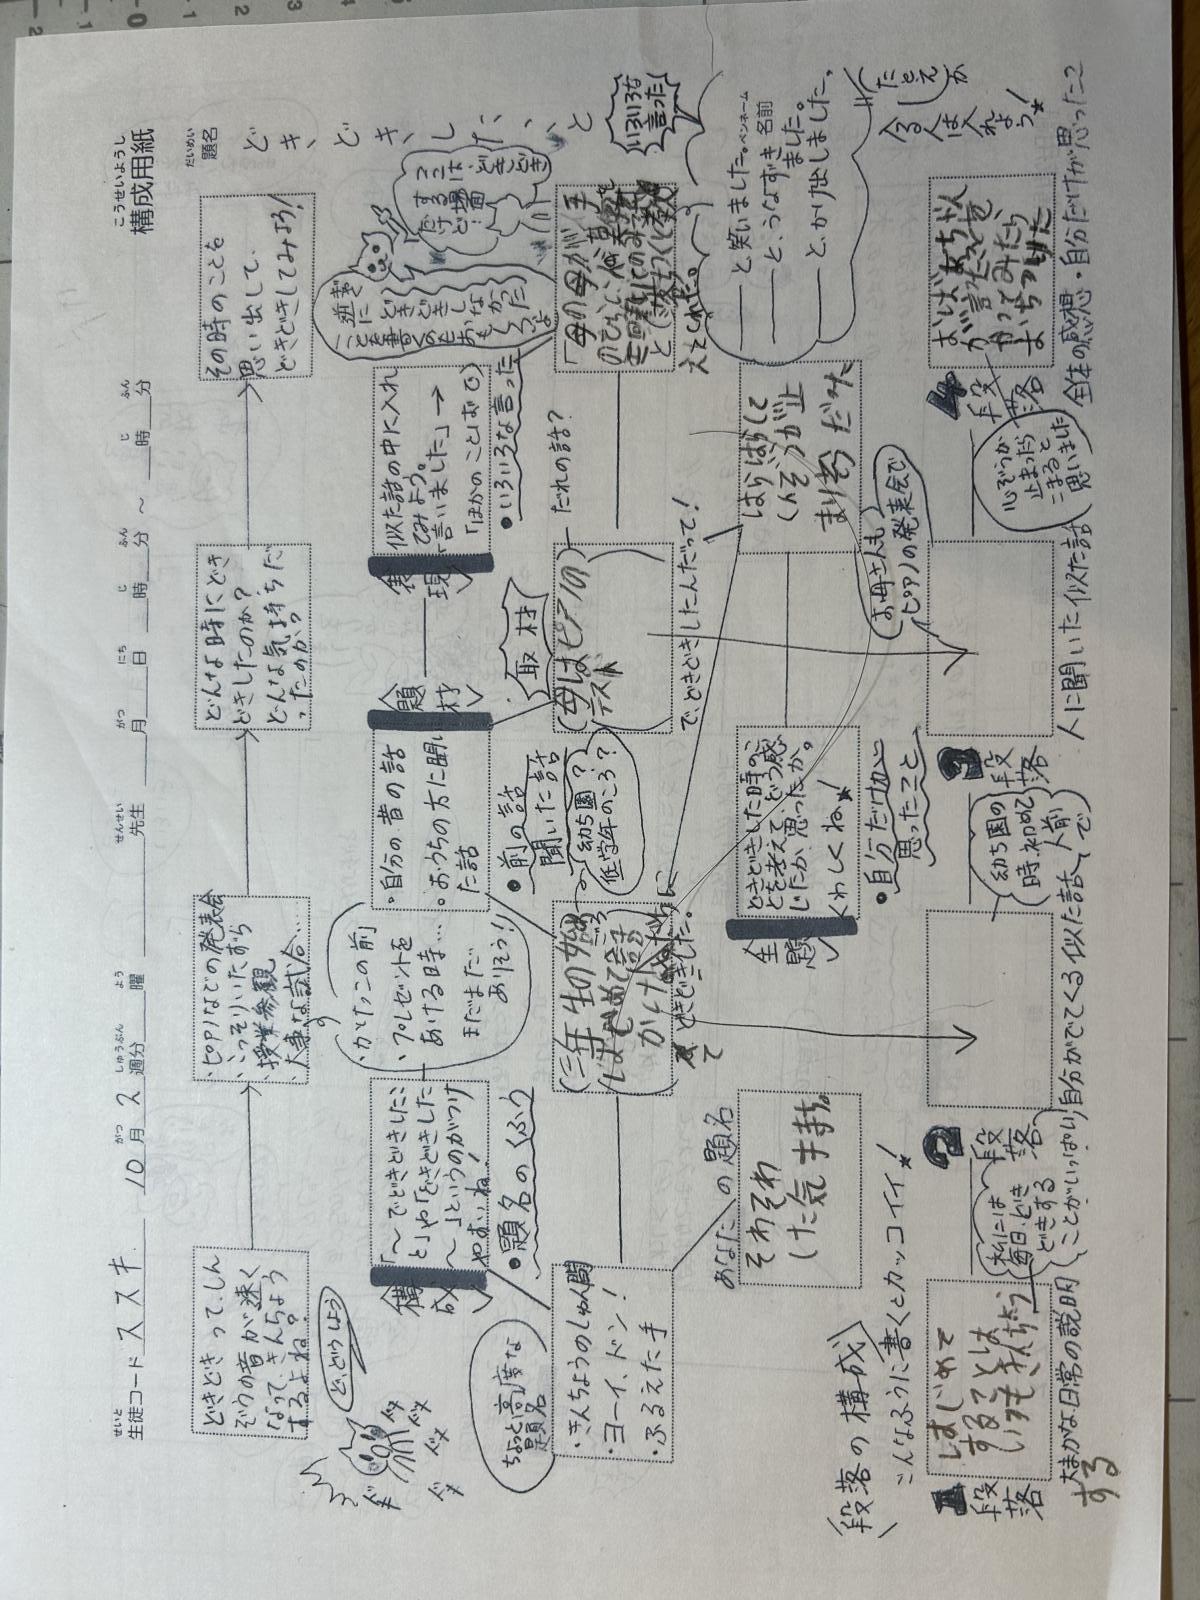 こうせいようし
構成用紙
せいと
生徒コード ススキ
10月2週分 曜 先生 月 日 時 分 ～ 時 分
だいめい
題名 どきどきしたこと
どきどきって、しん
ぞうの音が速く
なって、きんちょう
するよね?
・ピアノなどの発表会
・こっそりいたずら
・授業参観
・大事な試合…
どんな時にどき
どきしたのか?
どんな気持ちだ
ったのか?
その時のことを
思い出して、
どきどきしてみよう!
ど、どうしよう
・かけっこの前
・プレゼントを
あける時…
まだまだ
ありそう!
逆に
どきどきし
なかった
ことを書くのもおもしろいよ
ここは、どきどき
する場面
だけど…
構成
「～でどきどきしたこ
と」や「どきどきした
～」というのがつけ
やすいね!
・題名のくふう
題材
・自分の昔の話
・おうちの方に聞い
た話
・前の話
聞いた話
表現
似た話の中に入れ
てみよう。
「言いました」→
「ほかのことばの」
・いろいろな言った
いろいろな
言った
ちょっと高度な
題名
・きんちょうのしゅん間
・ヨーイ、ドン!
・ふるえた手
三年生の始めごろ
はじめて
どきどきしました。
幼ち園?
低学年のころ?
取材
母はピアノの
テスト
で、どきどきしたんだって!
だれの話?
「母の母が手
えとくれた。
―と笑いました。 ペンネーム
―と、うなずきました。 名前
―と、かけ出しました。
あなたの題名
そわそわ
した気持ち。
主題
どきどきした時のこ
とを考えて、どう感
じたか、思ったか。
くわしくね!
・自分だけが
思ったこと
はらはらして
しんぞうが止
まりそうだった
たとえが
入る人は入れよう!
〈段落の構成〉
こんなふうに書くとカッコイイ!
1段落
はじめて
することは
いつもきんちょう
する
大まかな日常の説明
私には
毎日、どき
どきする
ことがいっぱい
2段落
自分がでてくる似た話
幼ち園の
時、初めて
人前で
3段落
人に聞いた似た話
お母さんも
ピアノの発表会で
4段落
おばあちゃん
が言ったことを
やってみたら
おちついた
心ぞうが
止まったら
こまると
思いました
全体の感想・自分だけが思ったこと